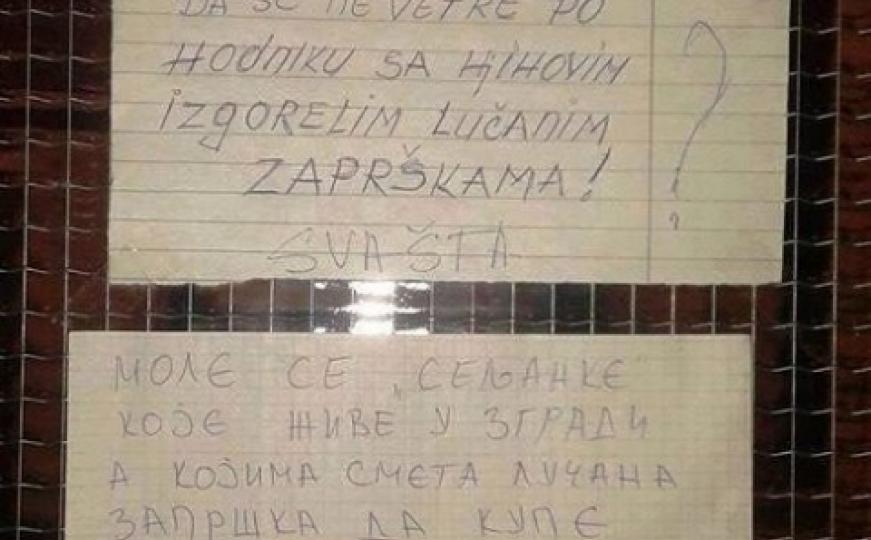 DA SE NE VETRE PO
HODNIKU SA NJIHOVIM
IZGORELIM LUČANIM
ZAPRŠKAMA!
SVAŠTA
?
МОЛЕ СЕ „СЕЉАНКЕ"
КОЈЕ ЖИВЕ У ЗГРАДИ
А КОЈИМА СМЕТА ЛУЧАНА
ЗАПРШКА ДА КУПЕ